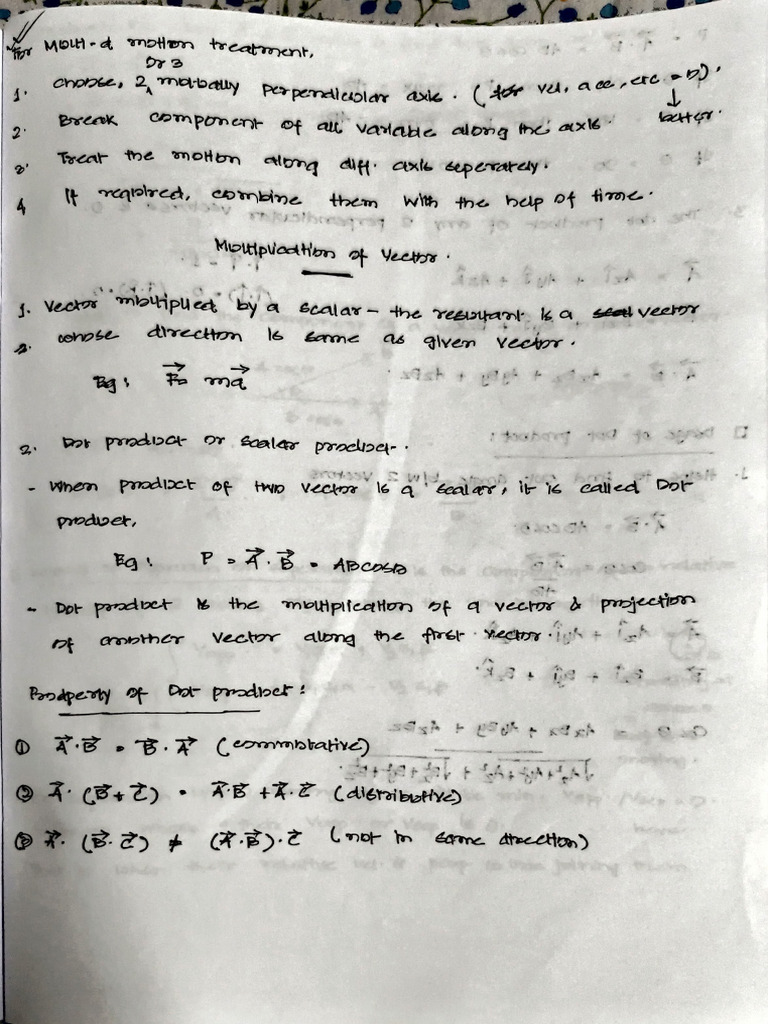 For Multi-d motion treatment,
or 3
1. choose, 2 mutually perpendicular axis. (for vel, acc, etc = 0).
better.
2. Break component of all variable along the axis.
3. Treat the motion along diff. axis seperately.
4 If required, combine them with the help of time.
Multiplication of Vector.
1. Vector multiplied by a scalar - the resultant is a vector
2. whose direction is same as given vector.
Eg: F⃗ = ma⃗
2. Dot product or scalar product.
- When product of two vector is a scalar, it is called Dot
product,
Eg: P = A⃗ . B⃗ = ABcosθ
- Dot product is the multiplication of a vector & projection
of another vector along the first vector.
Property of Dot product:
① A⃗.B⃗ = B⃗.A⃗ (commutative)
② A⃗. (B⃗ + C⃗) = A⃗.B⃗ + A⃗.C⃗ (distributive)
③ A⃗. (B⃗.C⃗) ≠ (A⃗.B⃗).C⃗ (not in same direction)